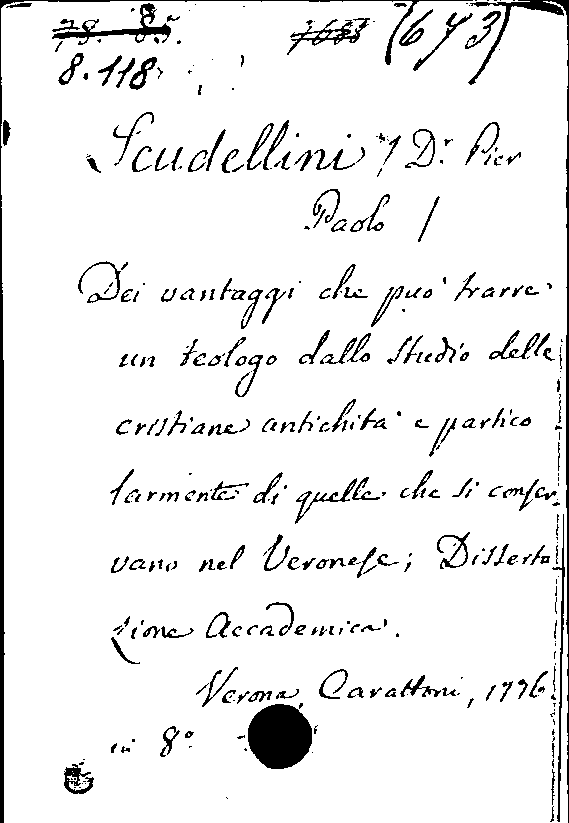 78. 85. 7688 (673)
8.118
Scudellini / Dr. Pier
Paolo /
Dei vantaggi che può trarre
un teologo dallo studio delle
cristiane antichità e partico
larmente di quelle che si conser-
vano nel Veronese; Disserta
zione Accademica.
Verona, Carattoni, 1776.
in 8°